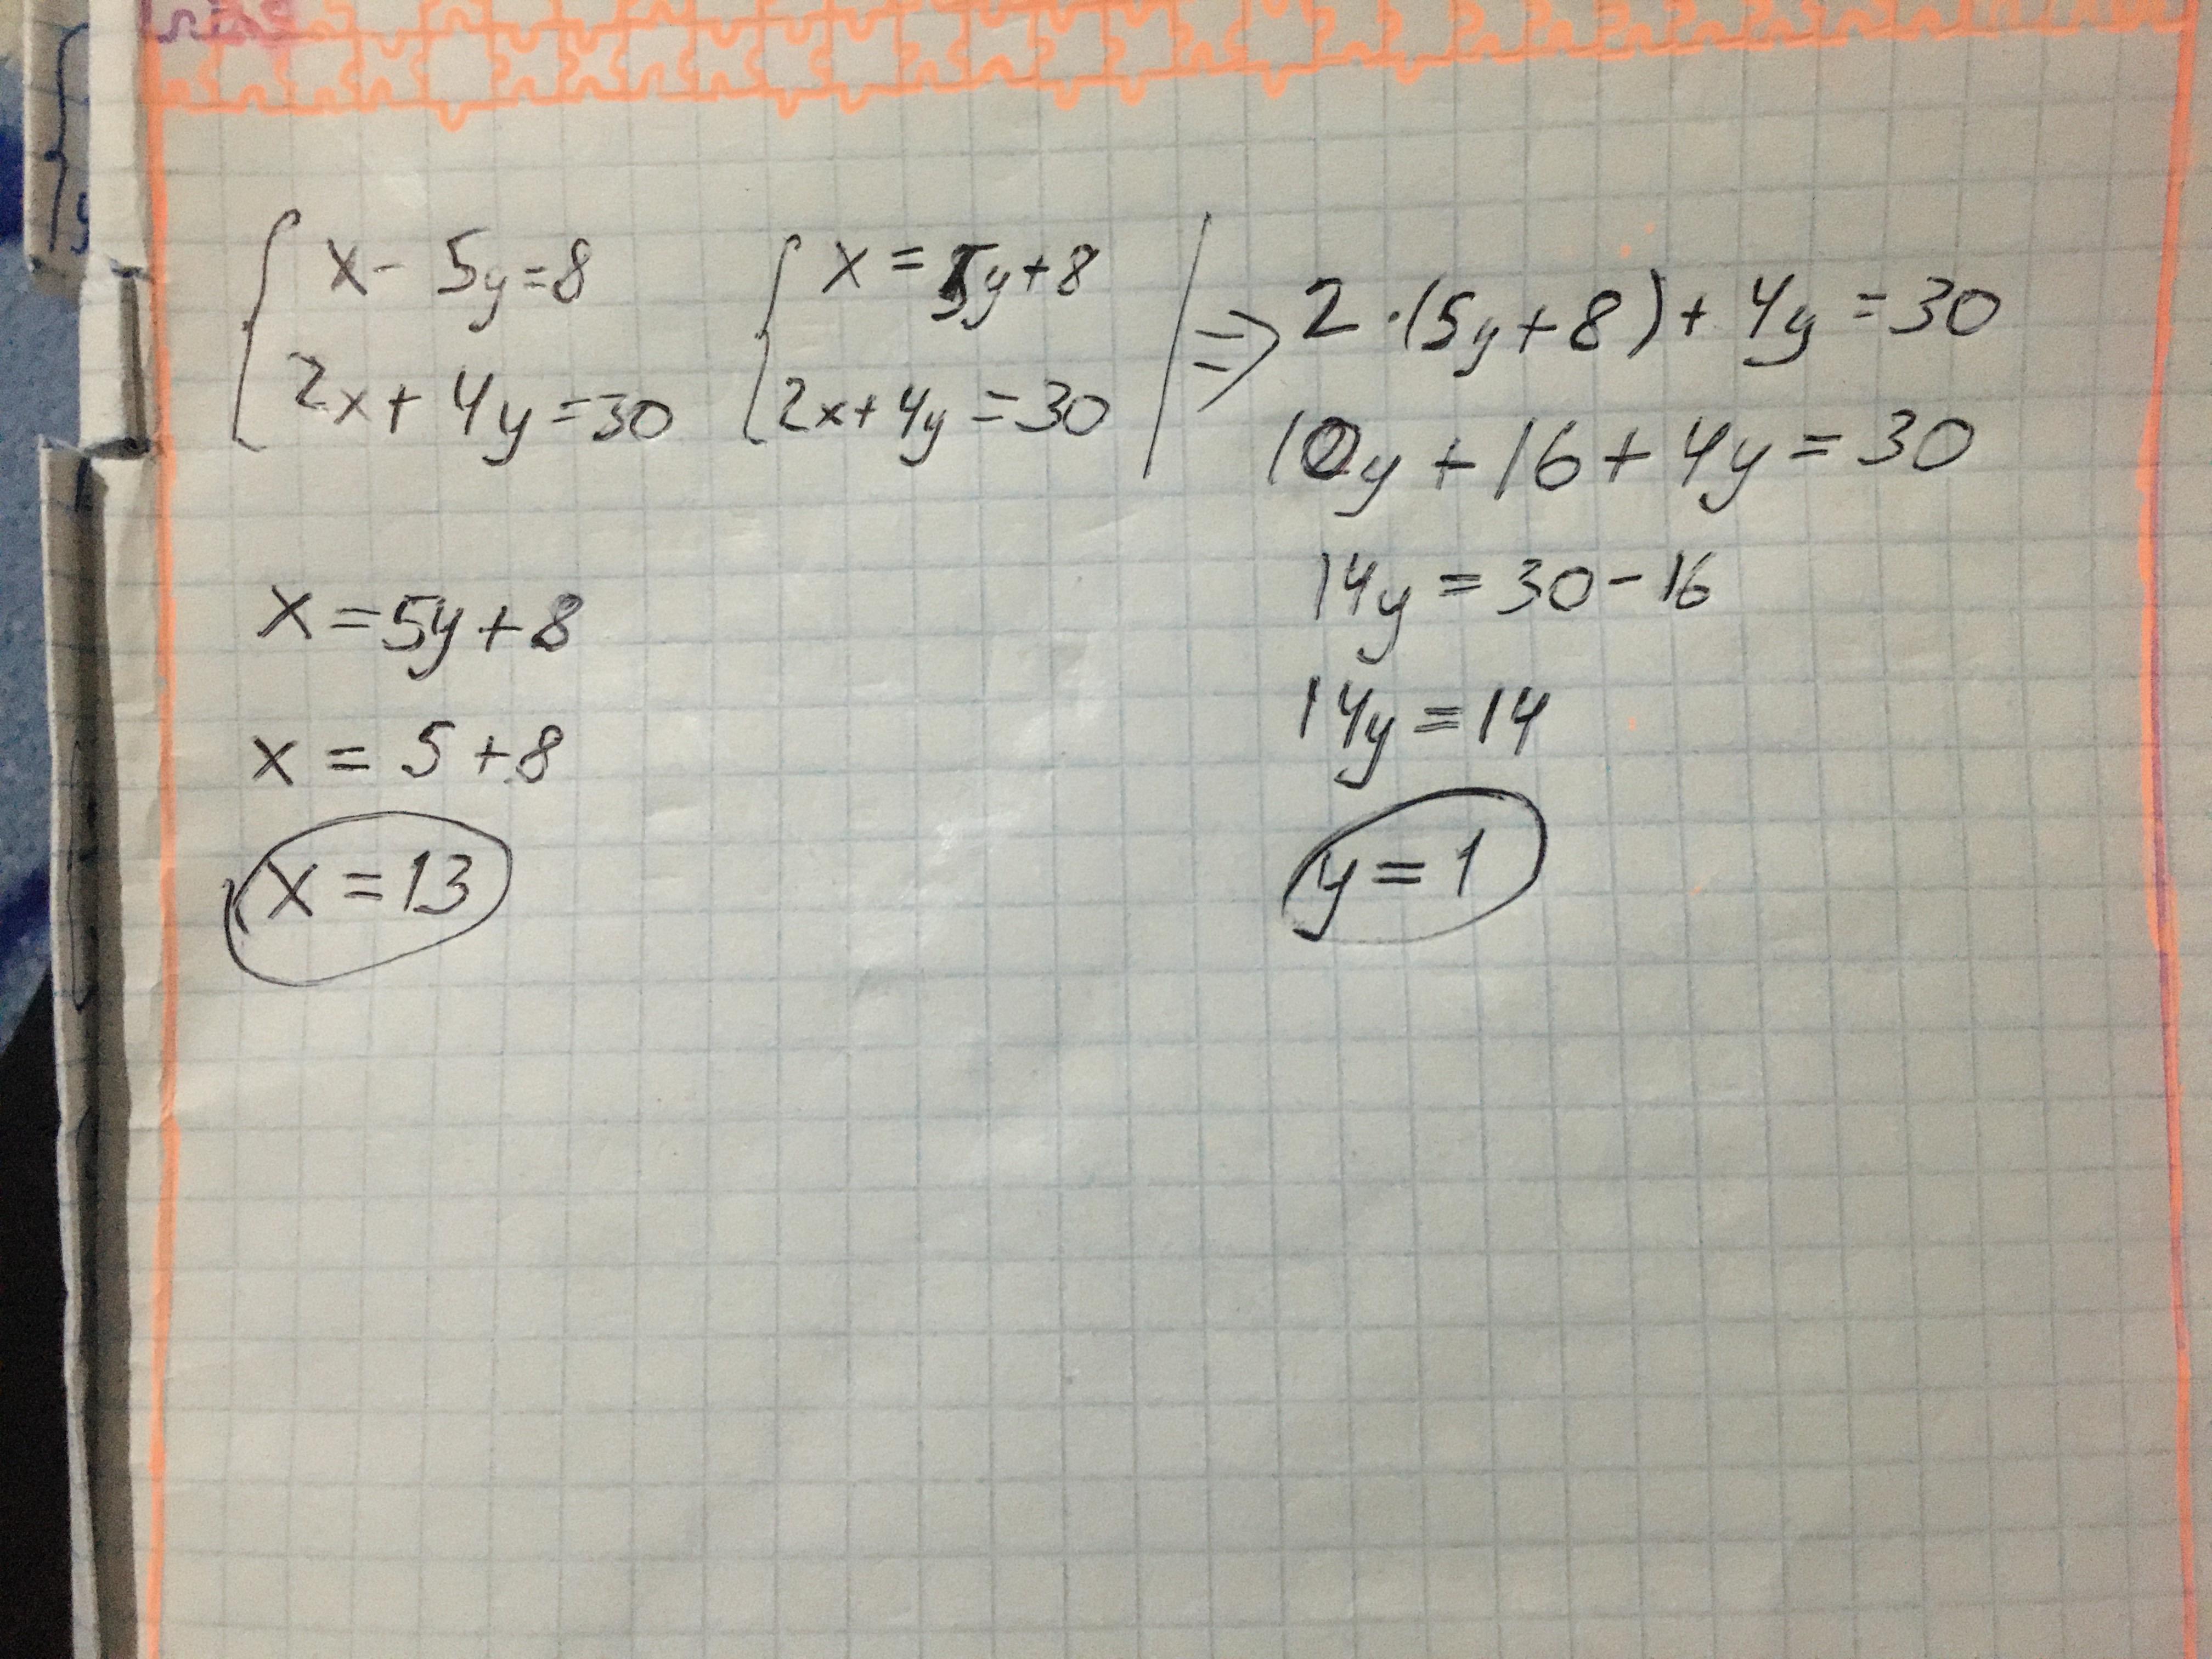 x - 5y = 8
2x + 4y = 30
x = 5y + 8
2x + 4y = 30
⇒ 2 · (5y + 8) + 4y = 30
10y + 16 + 4y = 30
14y = 30 - 16
14y = 14
y = 1
x = 5y + 8
x = 5 + 8
x = 13